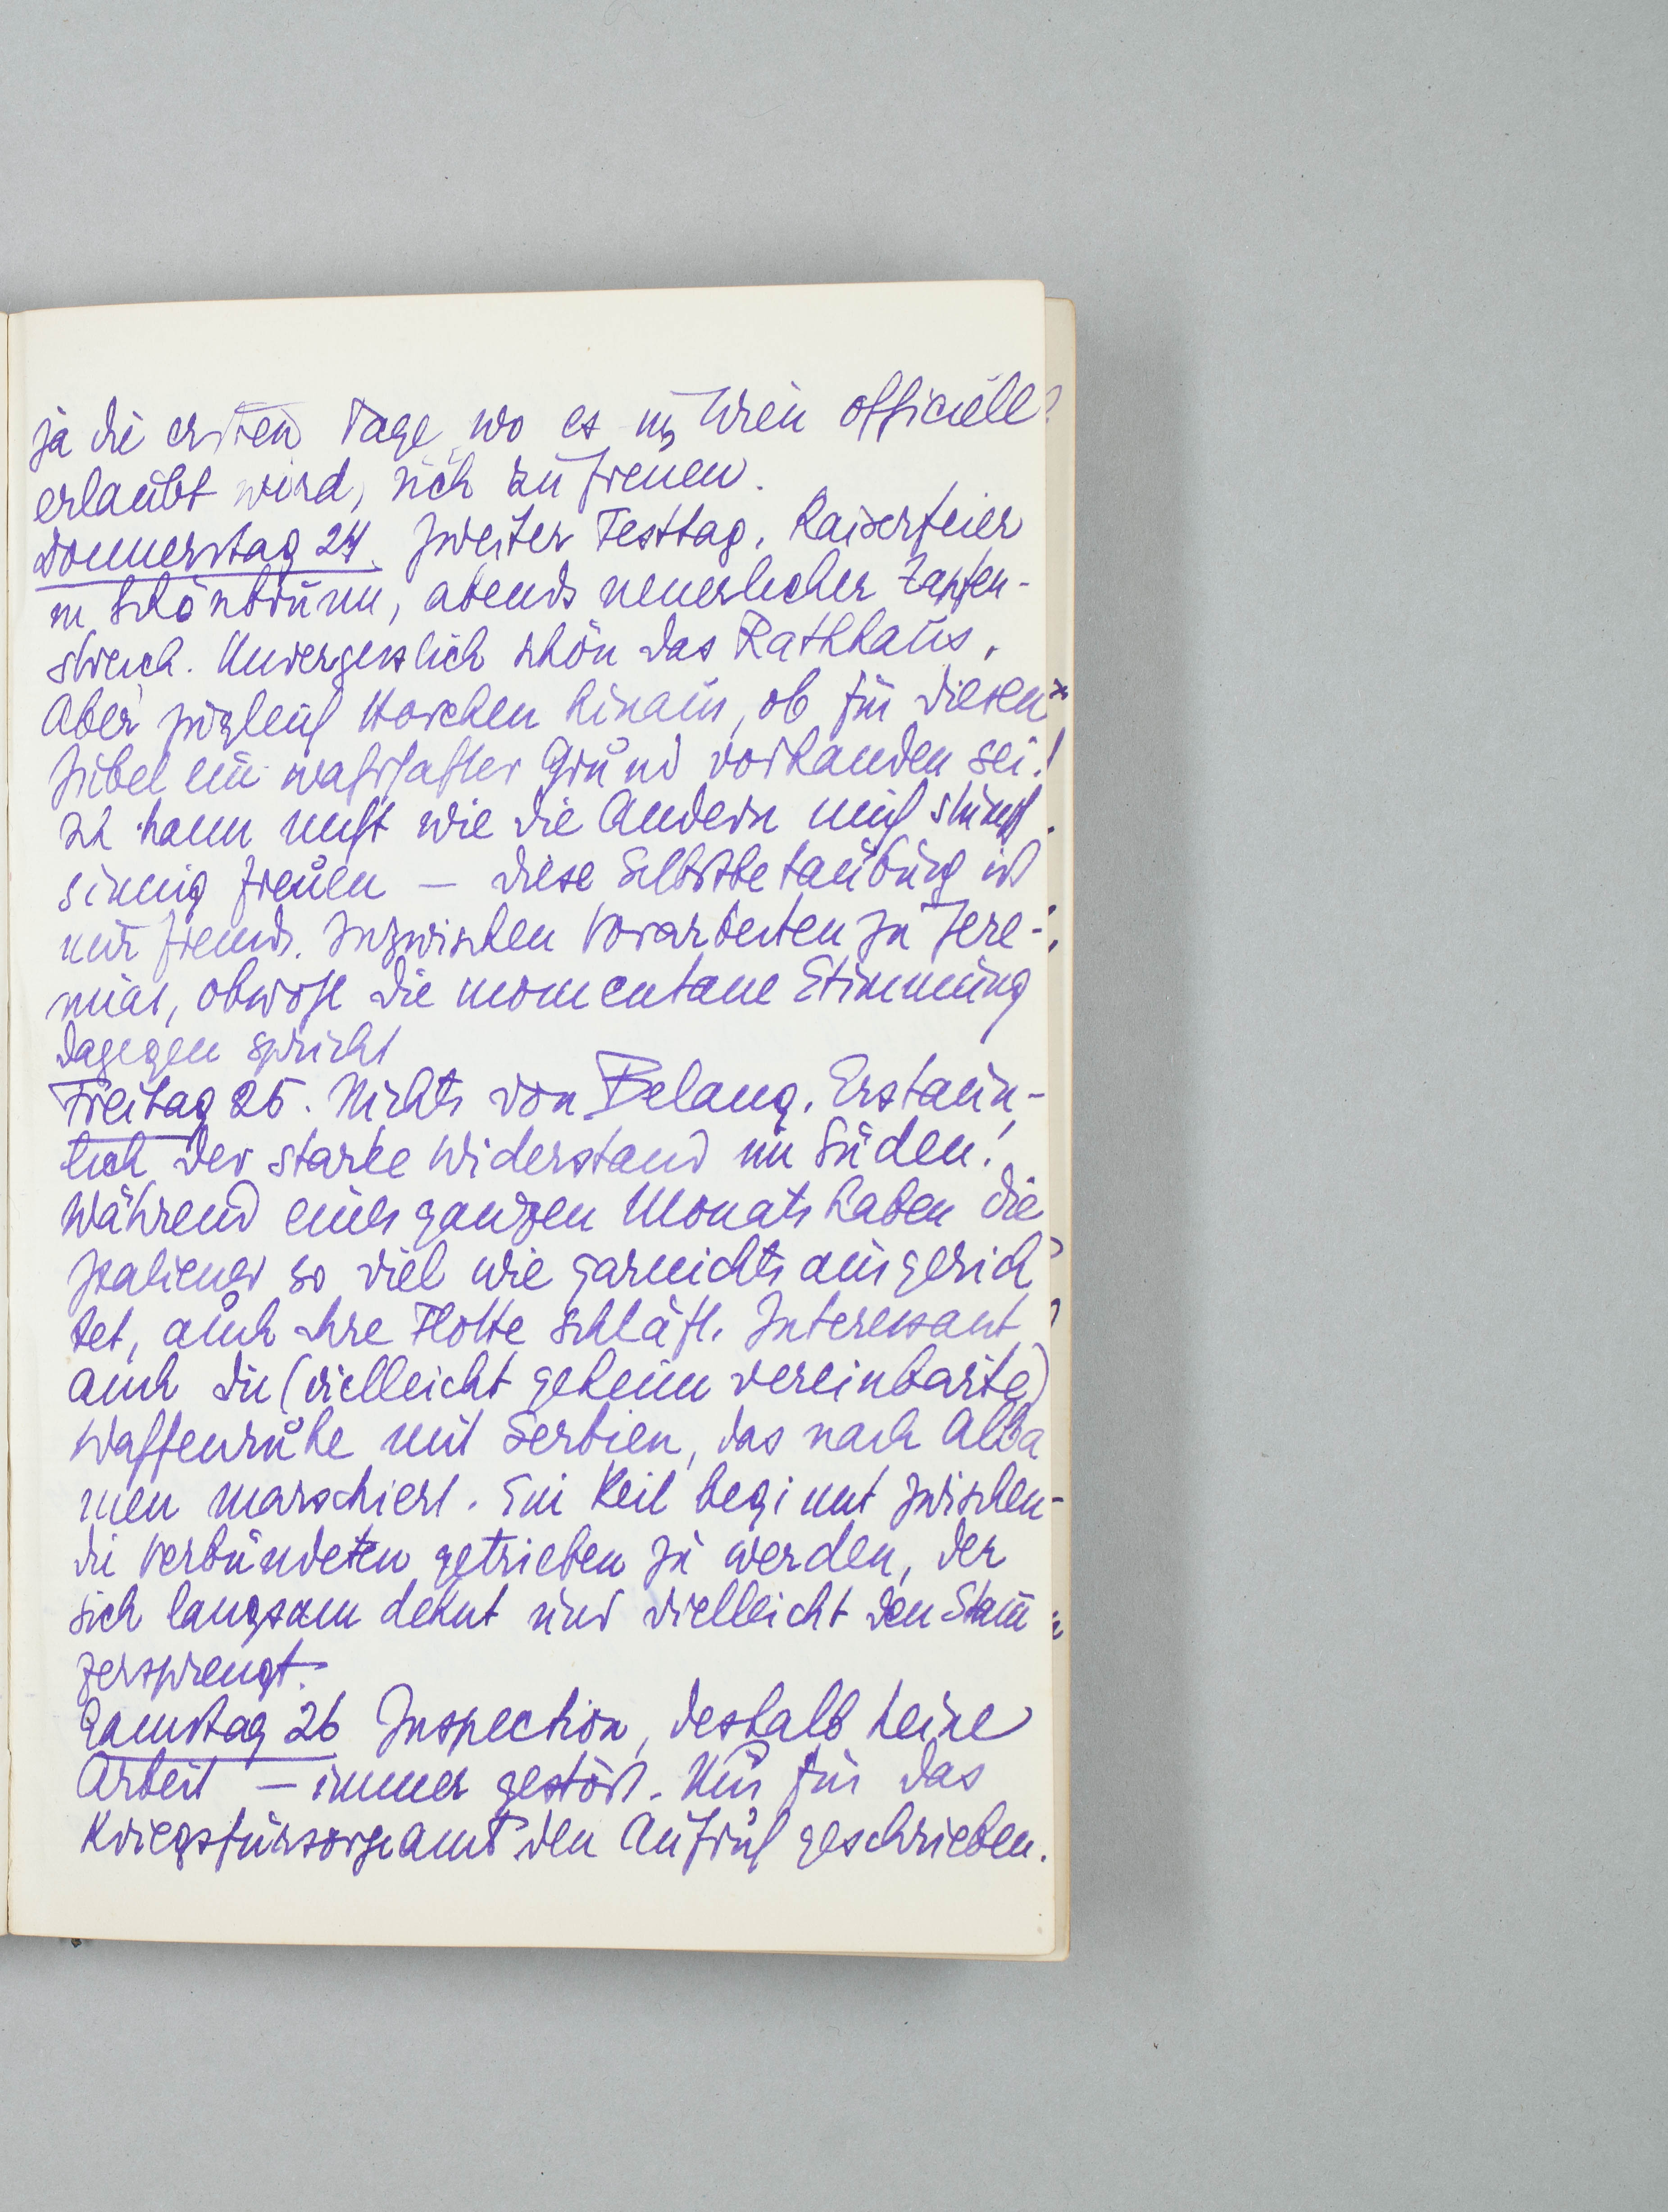 ja die ersten Tage, wo es in Wien officiell
erlaubt wird, sich zu freuen.
Donnerstag 24. Zweiter Festtag. Kaiserfeier
in Schönbrunn, abends neuerlicher Zapfen-
streich. Unvergesslich schön das Rathhaus.
Aber zugleich Horchen hinaus, ob für diesen
Jubel ein wahrhafter Grund vorhanden sei!
Ich kann nicht wie die Andern mich stumpf
sinnig freuen – diese Selbstbetäubung ist
mir fremd. Inzwischen Vorarbeiten zu Jere-
mias, obwohl die momentane Stimmung
dagegen spricht
Freitag 25. Nichts von Belang. Erstaun-
lich der starke Widerstand im Süden!
Während eines ganzen Monats haben die
Italiener so viel wie garnichts ausgerich
tet, auch ihre Flotte schläft. Interessant
auch die (vielleicht geheim vereinbarte)
Waffenruhe mit Serbien, das nach Alba
nien marschiert. Ein Keil beginnt zwischen
die Verbündeten getrieben zu werden, der
sich langsam dehnt und vielleicht den Stam
zersprengt.
Samstag 26 Inspection, deshalb keine
Arbeit – immer gestört. Nur für das
Kriegsfürsorgeamt den Aufruf geschrieben.